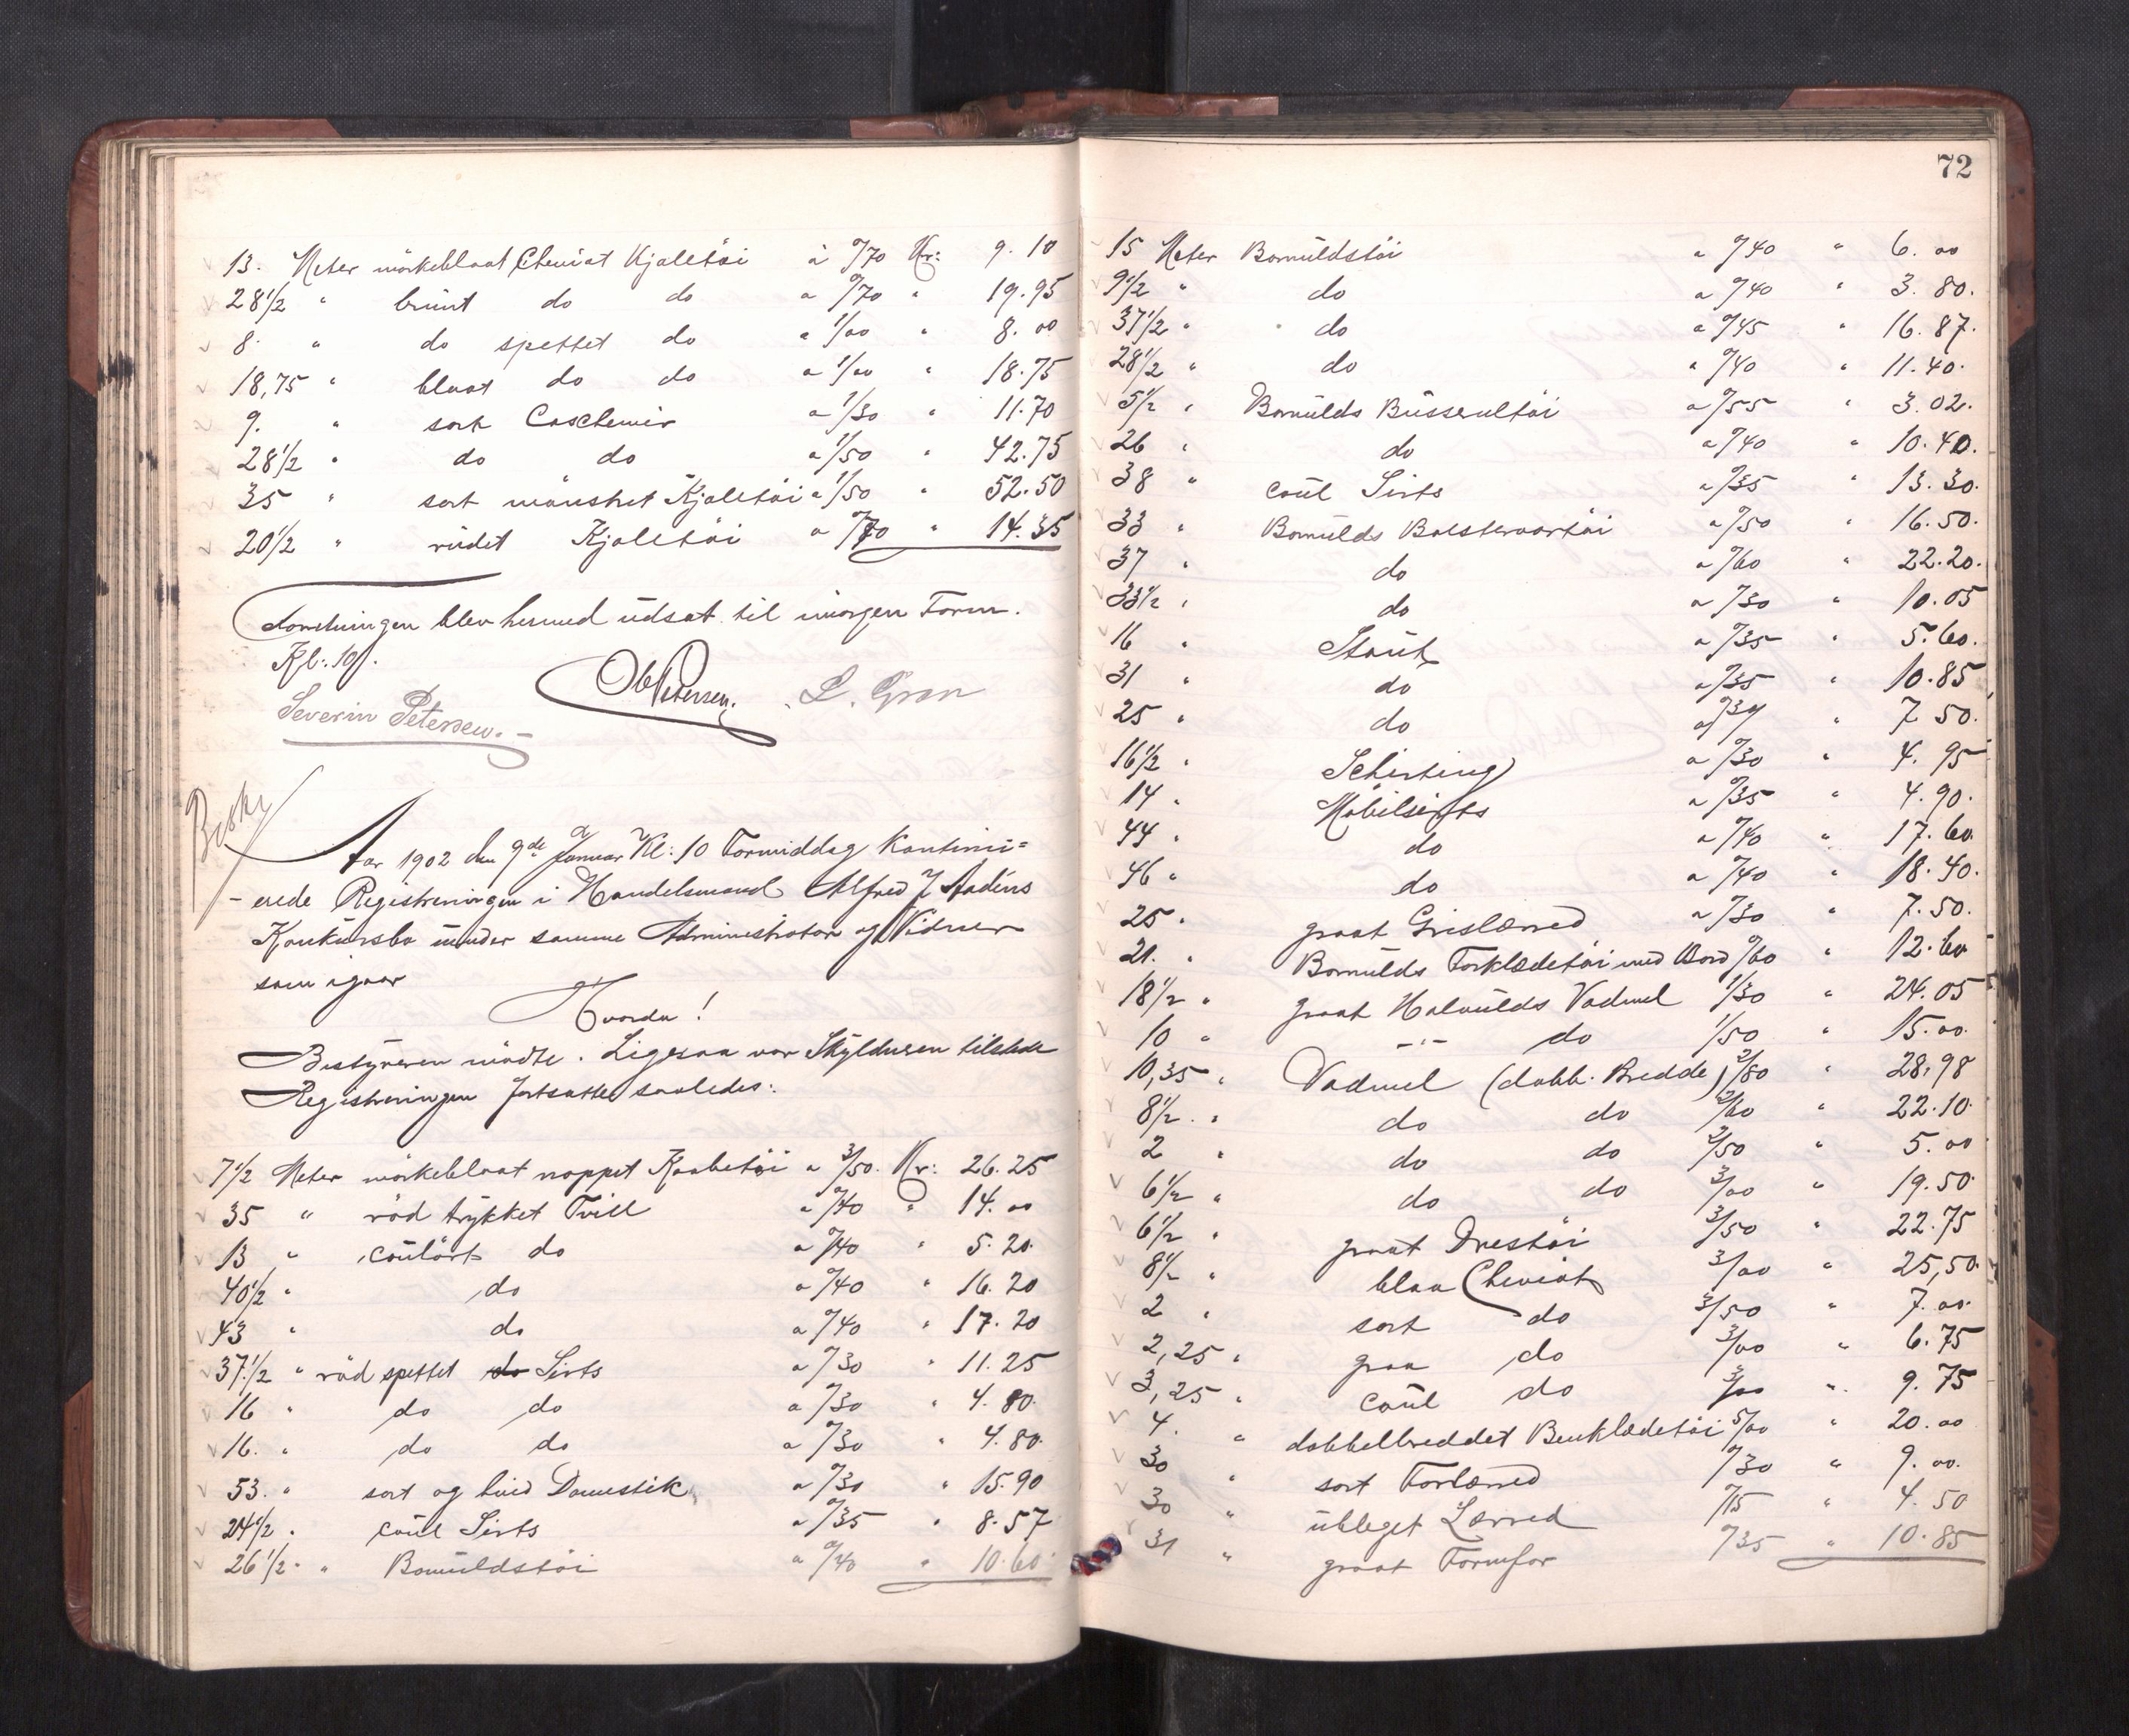 13. Meter mörkeblaat Cheviot Kjoletöi à 0/70 Kr: 9.10
28 1/2 " brunt do do a 0/70 " 19.95
8. " do spettet do a 1/00 " 8.00
18,75 " blaat do do a 1/00 " 18.75
9. " sort Caschemir a 1/30 " 11.70
28 1/2 " do do a 1/50 " 42.75
35 " sort mönstret Kjoletöi a 1/50 " 52.50
20 1/2 " rudet Kjoletöi a 0/70 " 14.35
Forretningen blev hermed udsat til imorgen Form.
Kl: 10.
Severin Petersen. O Petersen. L. Gran
Besk
Aar 1902 den 9de Januar Kl: 10 Formiddag kontinu=
-erede Registreringen i Handelsmand Alfred J
Konkursbo under samme Administrator og Vidner
som igaar
Hvorda!
Bestyreren mödte. Ligesaa var Skyldneren tilstede
Registreringen fortsattes saaledes:
7 1/2 Meter mörkeblaat noppet Kaabetöi a 3/50. Kr: 26.25
35 " röd trykket Tvill a 0/40 " 14.00
13 " coulört do a 0/40 " 5.20
40 1/2 " do a 0/40 " 16.20
43 " do a 0/40 " 17.20
37 1/2 " röd spettet do Sirts a 0/30 " 11.25
16 " do do a 0/30 " 4.80
16. " do do a 0/30 " 4.80
53. " sort og hvid Domestik a 0/30 " 15.90
24 1/2 " coul Sirts a 0/35 " 8.57
26 1/2 " Bomuldstöi a 0/40 " 10.60
72
15 Meter Bomuldstöi a 0/40 " 6.00
9 1/2 " do a 0/40 " 3.80.
37 1/2 " do a 0/45 " 16.87.
28 1/2 " do a 0/40 " 11.40.
5 1/2 " Bomulds Busserultöi a 0/55 " 3.02.
26 " do a 0/40 " 10.40.
38 " coul Sirts a 0/35 " 13.30.
33 " Bomulds Bolstervartöi a 0/50 " 16.50.
37 " do a 0/60 " 22.20.
33 1/2 " do a 0/30 " 10.05
16 " Stout a 0/35 " 5.60.
31 " do a 0/35 " 10.85
25 " do a 0/30 " 7.50.
16 1/2 " Schirting a 0/30 " 4.95
14 " Möbilsirts a 0/35 " 4.90.
44 " do a 0/40 " 17.60
46 " do a 0/40 " 18.40.
25 " graat Grislærred a 0/30 " 7.50.
21. " Bomulds Forklædetöi med Bord 0/60 " 12.60
18 1/2 " graat Halvulds Vadmel 1/30 " 24.05
10 " -"- do 1/50 " 15.00.
10,35 " Vadmel (dobb. Bredde) 2/80 " 28,98
8 1/2 " do do 2/60 " 22.10
2 " do do 2/50 " 5.00
6 1/2 " do do 3/00 " 19.50
6 1/2 " graat Drestöi 3/50 " 22.75
8 1/2 " blaa Cheviot 3/00 " 25,50
2 " sort do 3/50 " 7.00.
2,25 " graa do 3/00 " 6.75
3,25 " coul do 3/00 " 9.75
4. " dobbelbreddet Benklædetöi 5/00 " 20.00
30 " sort Forlærred 0/30 " 9.00.
30 " ubleget Lærred 0/15 " 4.50
31 " graat Formfor 0/35 " 10.85